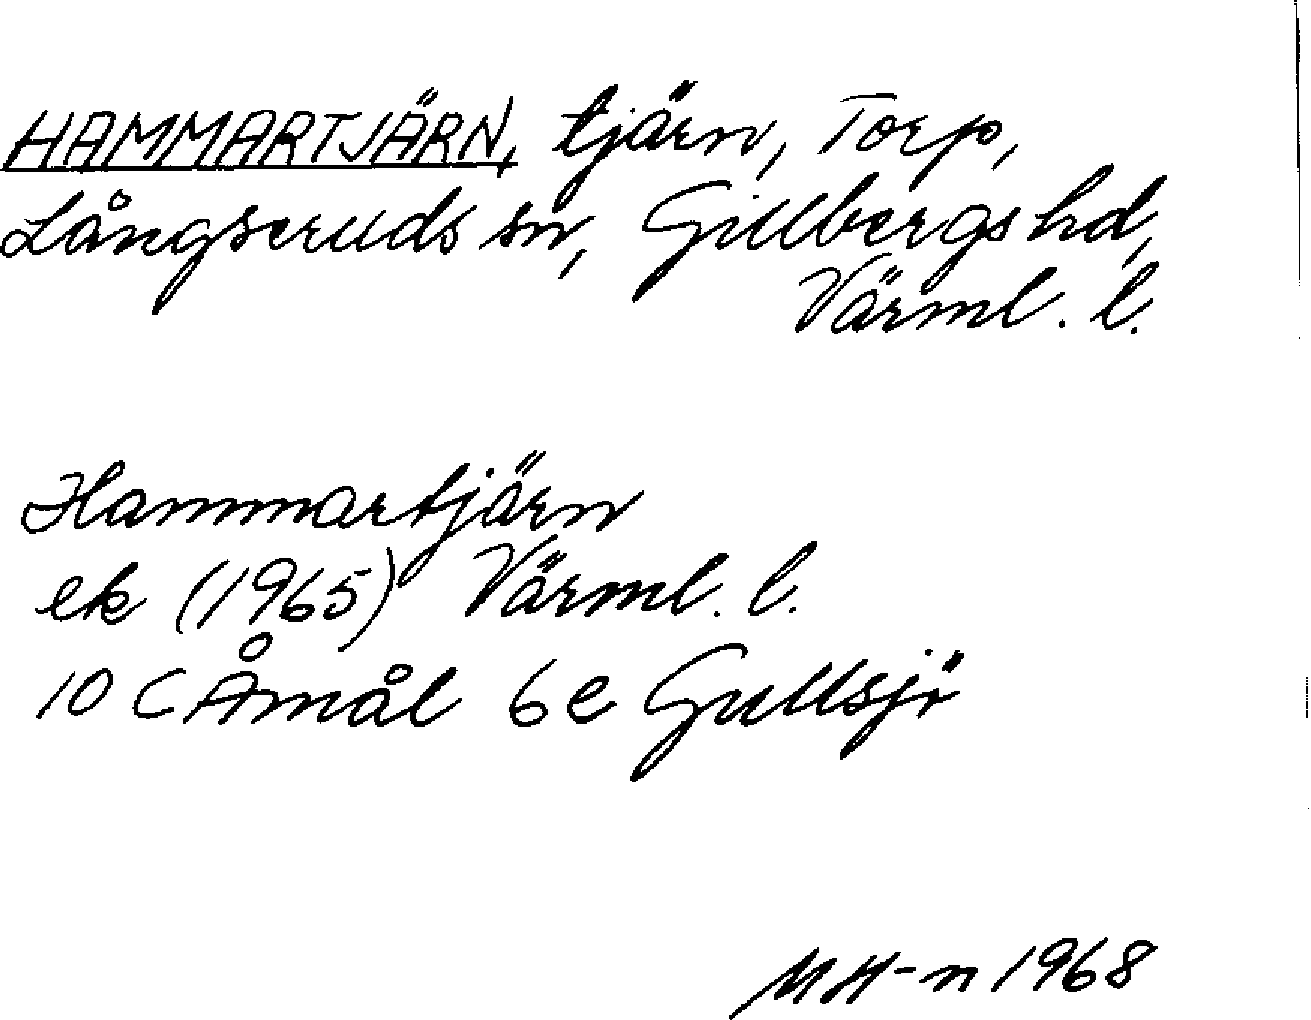 HAMMARTJÄRN, tjärn, Torp,
Långseruds sn, Gillbergs hd,
Värml. l.
Hammartjärn
ek (1965) Värml. l.
10 C Åmål 6 e Gullsjö
MH-n 1968